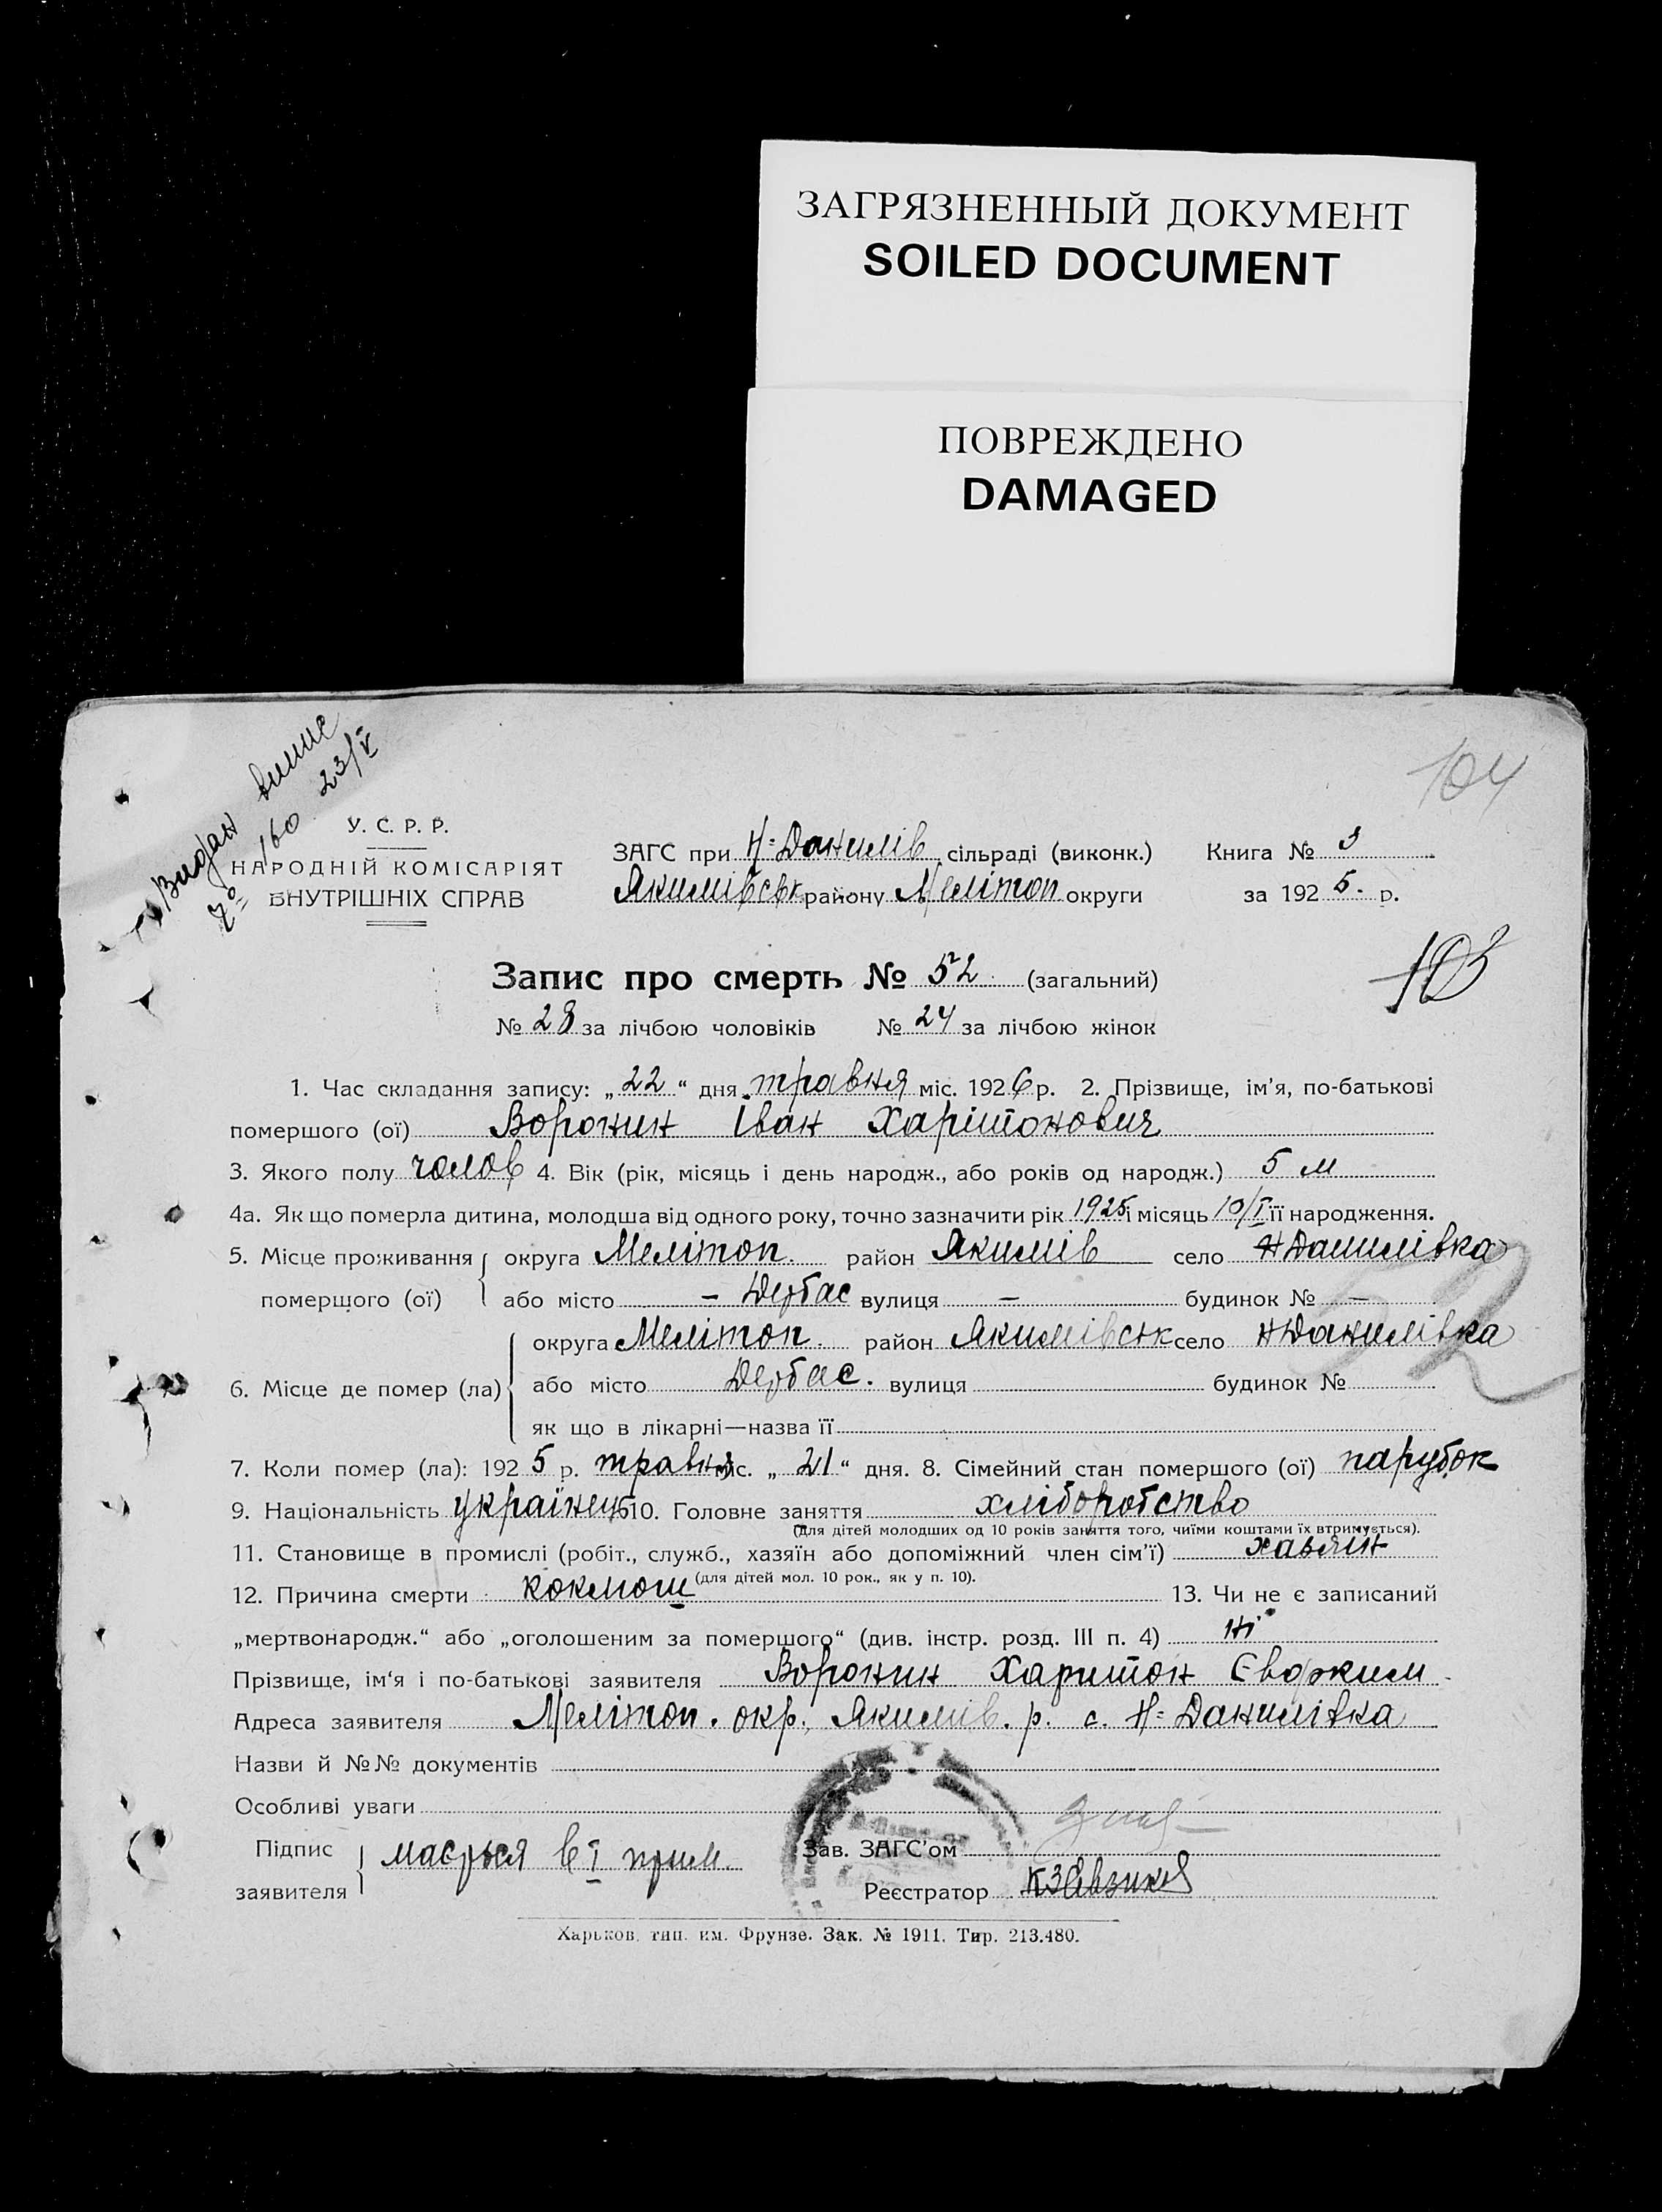 ЗАГРЯЗНЕННЫЙ ДОКУМЕНТ
SOILED DOCUMENT
ПОВРЕЖДЕНО
DAMAGED
104
Видан випис
№ 160 23/V
У. С. Р. Р.
НАРОДНІЙ КОМІСАРІЯТ
ВНУТРІШНІХ СПРАВ
ЗАГС при Н-Данилів сільраді (виконк.) Книга № 3
Якимівськ району Мелітоп округи за 1925 р.
103
Запис про смерть № 52 (загальний)
№ 28 за лічбою чоловіків № 24 за лічбою жінок
1. Час складання запису: „22“ дня травня міс. 1926 р. 2. Прізвище, ім’я, по-батькові
помершого (ої) Воронин Іван Харітонович
3. Якого полу чолов 4. Вік (рік, місяць і день народж., або років од народж.) 5 м
4а. Як що померла дитина, молодша від одного року, точно зазначити рік 1925 і місяць 10/I її народження.
5. Місце проживання округа Мелітоп. район Якимів село Н Данилівка
помершого (ої) або місто – Дербас вулиця – будинок № –
52
округа Мелітоп. район Якимівськ село Н Данилівка
6. Місце де помер (ла) або місто Дербас. вулиця будинок №
як що в лікарні—назва її
7. Коли помер (ла): 1925 р. травня міс. „21“ дня. 8. Сімейний стан помершого (ої) парубок
9. Національність українець 10. Головне заняття хліборобство
(для дітей молодших од 10 років заняття того, чиїми коштами їх втримується).
11. Становище в промислі (робіт., служб., хазяїн або допоміжний член сім’ї) хазяїн
(для дітей мол. 10 рок., як у п. 10).
12. Причина смерти коклюш 13. Чи не є записаний
„мертвонародж.“ або „оголошеним за померщого“ (див. інстр. розд. III п. 4) ні
Прізвище, ім‘я і по-батькові заявителя Воронин Харитон Євдоким
Адреса заявителя Мелітоп. окр. Якимів. р. с. Н-Данилівка
Назви й №№ документів
Особливі уваги
Підпис заявителя мається в І прим. Зав. ЗАГС’ом
Реєстратор
Харьков, тип. им. Фрунзе. Зак. № 1911. Тир. 213.480.